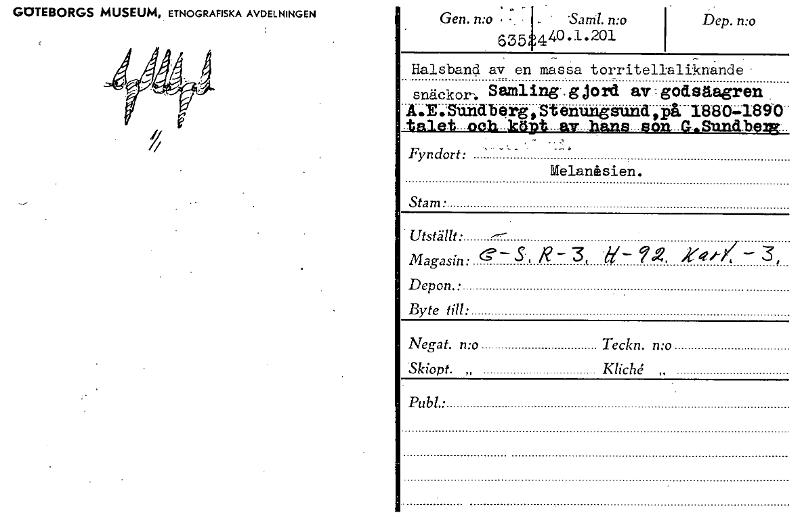 GÖTEBORGS MUSEUM, ETNOGRAFISKA AVDELNINGEN
1/1
Gen. n:o Saml. n:o Dep. n:o
63524 40.1.201
Halsband av en massa torritellaliknande
snäckor. Samling gjord av godsäagren
A.E.Sundberg, Stenungsund, på 1880-1890
talet och köpt av hans son G.Sundberg
Fyndort:
Melanesien.
Stam:
Utställt:
Magasin: G-S. R-3. H-92. Kart. - 3.
Depon.:
Byte till:
Negat. n:o Teckn. n:o
Skiopt. „ Kliché „
Publ.: